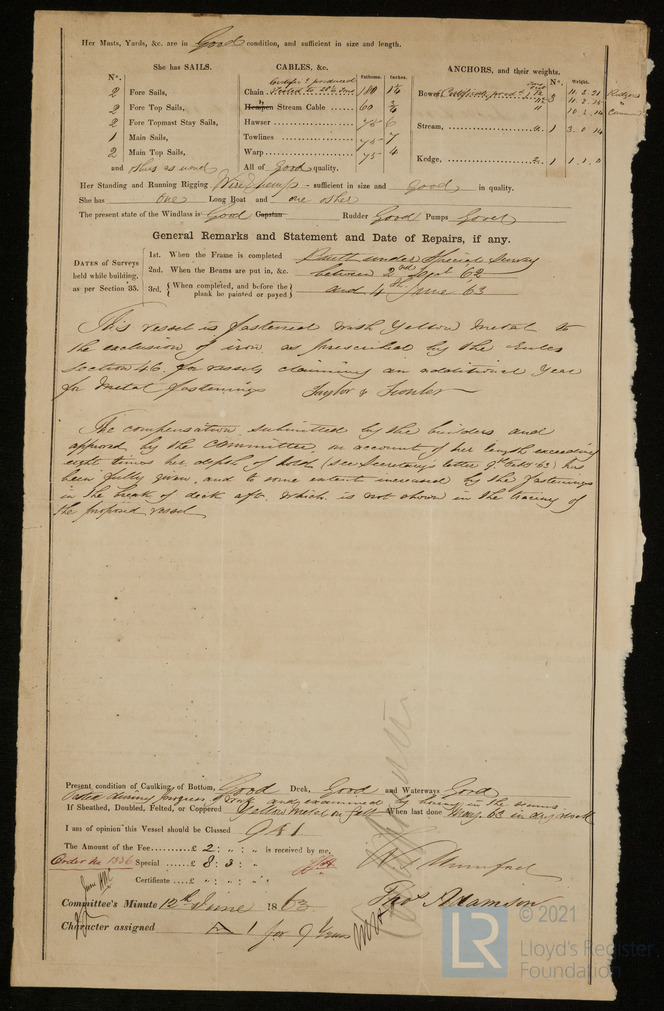 Her Masts, Yards, &c. are in Good condition, and sufficient in size and length.
She has SAILS.
CABLES, &c.
Fathoms.
Inches.
ANCHORS, and their weights.
Nº.
Weight.
Nº.
2 Fore Sails,
2 Fore Top Sails,
2 Fore Topmast Stay Sails,
1 Main Sails,
2 Main Top Sails,
and others as usual
Chain
Hempen Stream Cable 60
Hawser 75 6
Towlines 75 7
Warp 75 4
All of Good quality.
Bower 3 11. 2. 21 Rodgers
11. 2. 15 "
10. 2. 14
Stream, 1 3. 0. 14
Kedge, 1 1. 1. 0
Her Standing and Running Rigging Wire & hemp sufficient in size and good in quality.
She has one Long Boat and one other
The present state of the Windlass is Good Capstan Rudder Good Pumps Good
General Remarks and Statement and Date of Repairs, if any.
DATES of Surveys held while building, as per Section 35.
1st. When the Frame is completed Built under Special Survey
2nd. When the Beams are put in, &c. between 2nd Sept 62
3rd. { When completed, and before the plank be painted or payed } and 4th June 63
This vessel is fastened with Yellow Metal to
the exclusion of iron as prescribed by the Rules
Section 46. for vessels claiming an additional Year
for Metal fastenings
The compensation submitted by the builders and
approved by the Committee, on account of her length exceeding
eight times her depth of hold (see Secretary's letter 9th Feb 63) has
been fully given, and to some extent increased by the fastenings
in the break of deck aft, which is not shown in the tracing of
the proposed vessel
Present condition of Caulking, of Bottom, Good Deck, Good and Waterways Good
Tested during progress of work and examined by boring in the seams
If Sheathed, Doubled, Felted, or Coppered Yellow Metal on felt When last done May 63 in dry dock
I am of opinion this Vessel should be Classed 9 A 1
The Amount of the Fee £ 2 : " : " is received by me,
Order No 1836 Special £ 8 : 3 : "
Certificate £ " : " : "
Thos. Adamson
Committee's Minute 12th June 1863
Character assigned A 1 for 9 Years
LR
© 2021
Lloyd's Register
Foundation